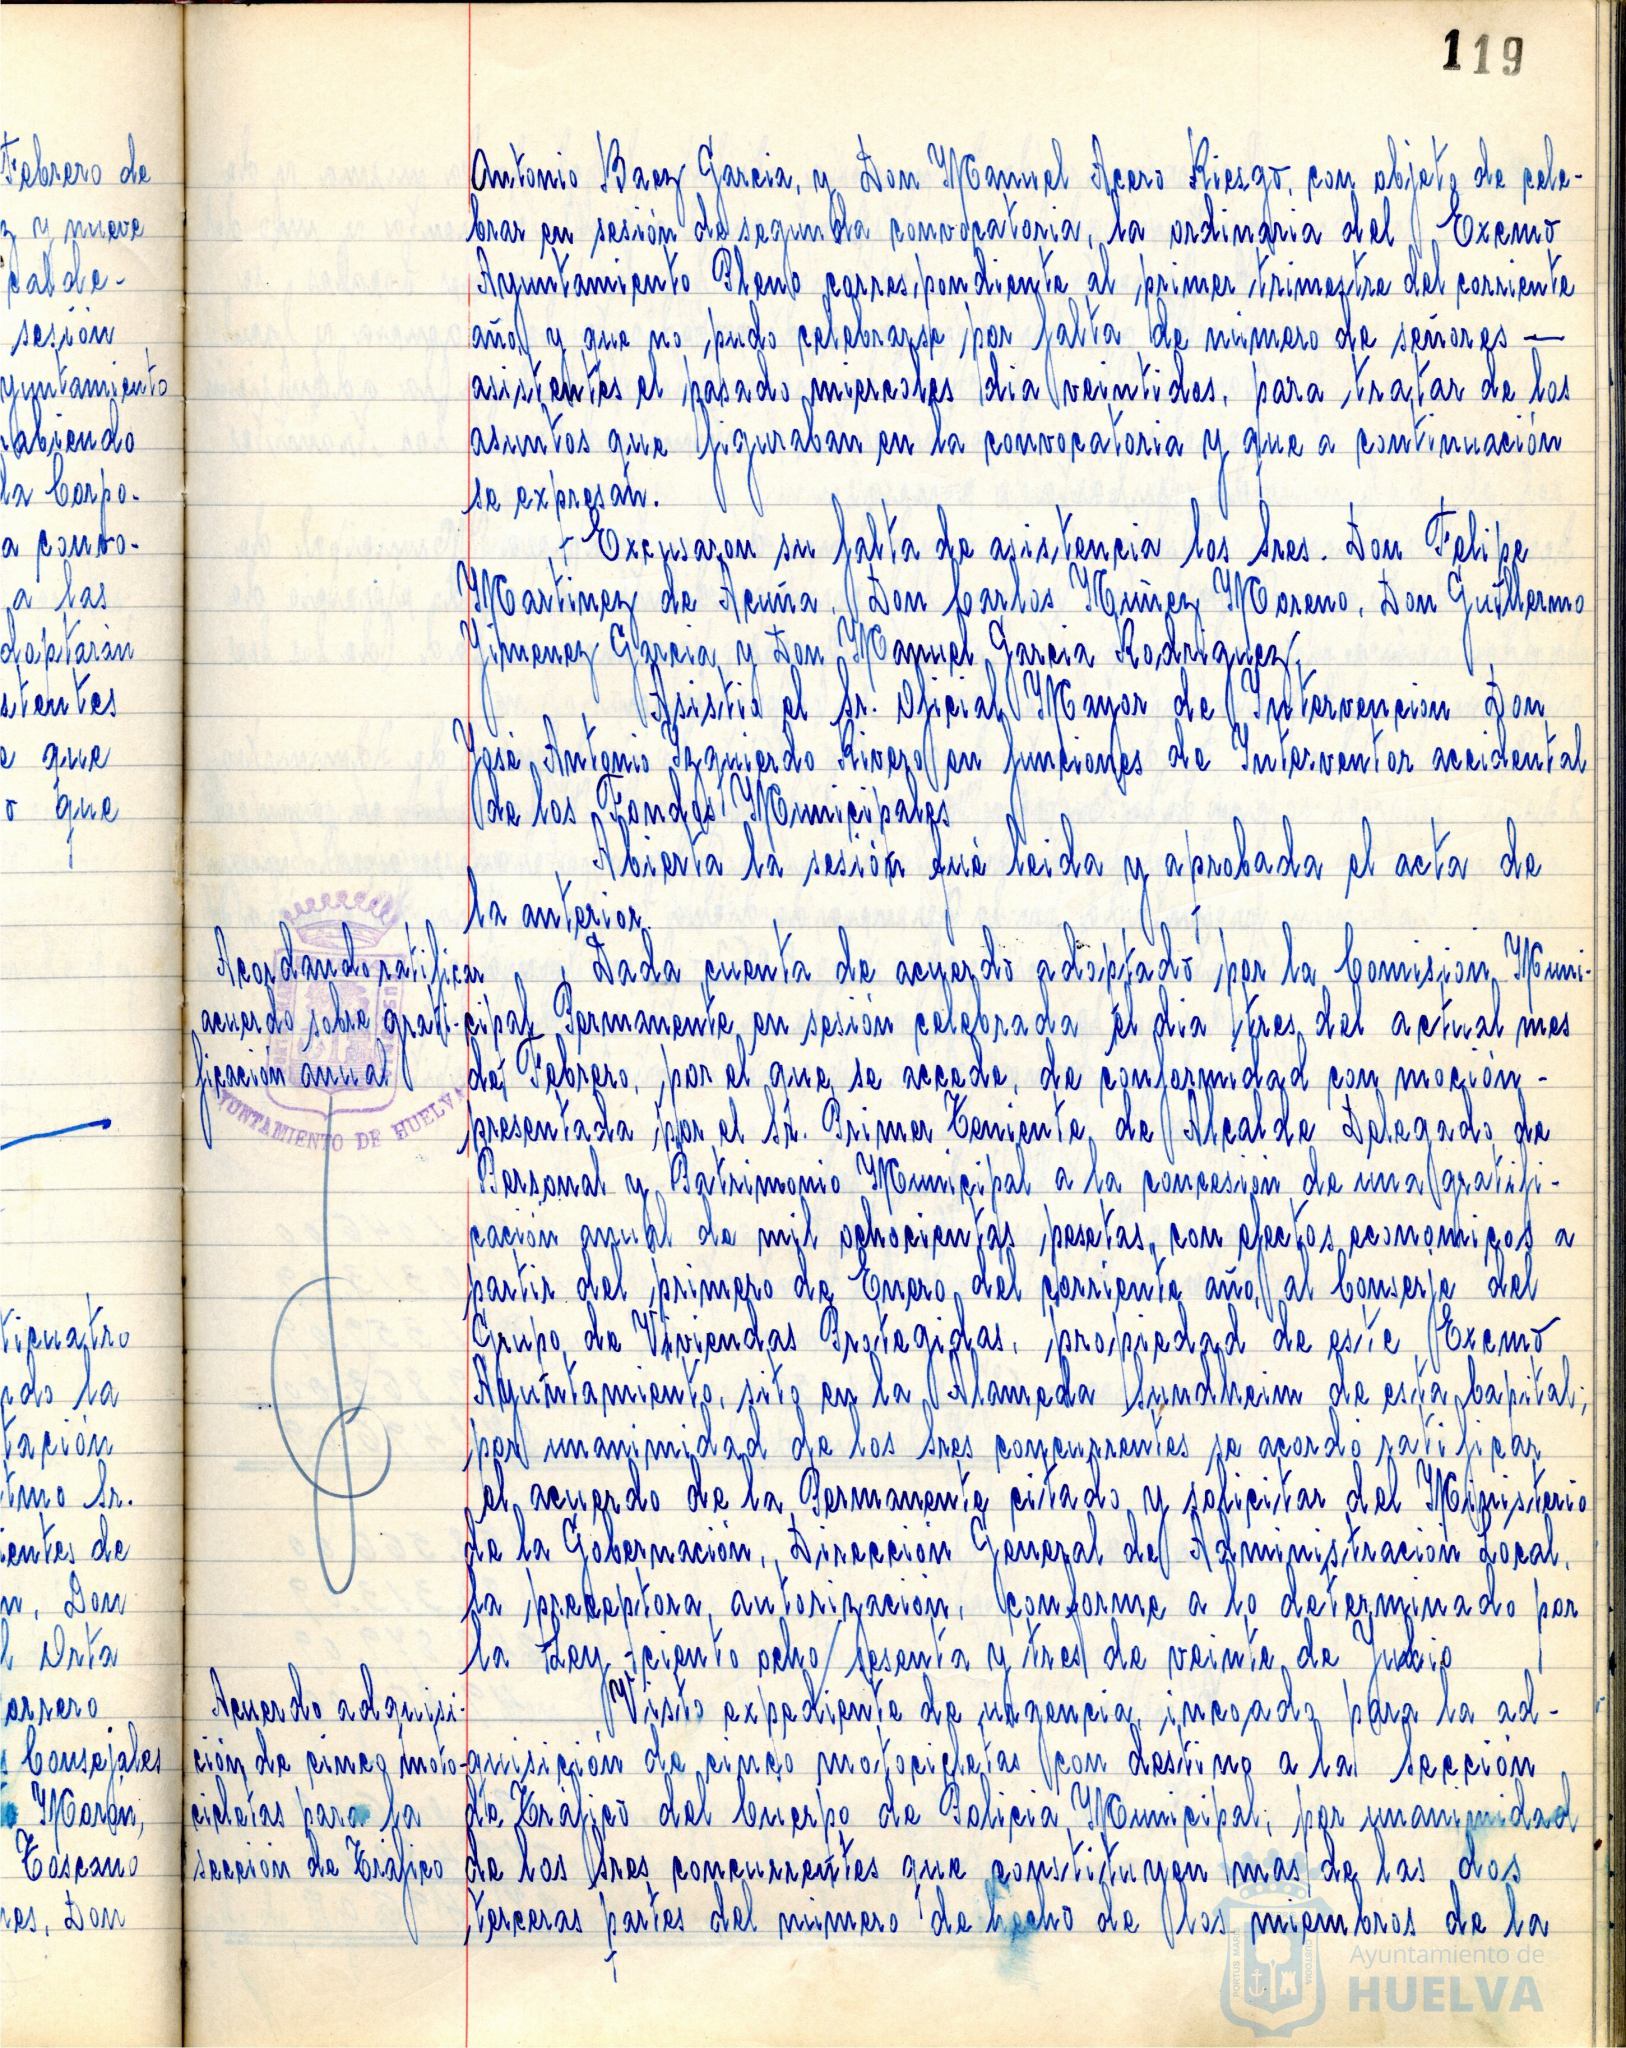 119
Febrero de
z y nueve
calde-
sesión
yuntamiento
habiendo
la Corpo-
a convo-
a las
doptarán
stentes
e que
o que
ticuatro
ndo la
tación
tmo Sr.
ientes de
n, Don
l Orta
orrero
s Consejales
Morón,
Toscano
res, Don
Antonio Baez Garcia, y Don Manuel Acero Riesgo, con objeto de cele-
brar en sesión de segunda convocatoria, la ordinaria del Excmo
Ayuntamiento Pleno correspondiente al primer trimestre del corriente
año, y que no pudo celebrarse por falta de número de señores —
asistentes el pasado miercoles dia veintidos, para tratar de los
asuntos que figuraban en la convocatoria y que a continuación
se expresan.
Excusaron su falta de asistencia los Sres. Don Felipe
Martinez de Acuña, Don Carlos Muñez Moreno, Don Guillermo
Jimenez Garcia y Don Manuel Garcia Rodriguez,
Asistió el Sr. Oficial Mayor de Intervencion Don
José Antonio Izquierdo Rivero en funciones de Interventor accidental
de los Fondos Municipales
Abierta la sesión fué leida y aprobada el acta de
la anterior.
Acordando ratificar
acuerdo sobre grati-
ficación anual
AYUNTAMIENTO DE HUELVA
Dada cuenta de acuerdo adoptado por la Comision Muni-
cipal Permanente en sesión celebrada el dia tres del actual mes
de Febrero, por el que se accede, de conformidad con moción -
presentada por el Sr. Primer Teniente de Alcalde Delegado de
Personal y Patrimonio Municipal a la concesión de una gratifi-
cación anual de mil ochocientas pesetas, con efectos economicos a
partir del primero de Enero del corriente año, al Conserje del
Grupo de Viviendas Protegidas, propiedad de este Excmo
Ayuntamiento, sito en la Alameda Sundheim de esta Capital;
por unanimidad de los sres concurrentes se acordo ratificar
el acuerdo de la Permanente citado y solicitar del Ministerio
de la Gobernación, Dirección General de Administración Local,
la preceptora autorización, conforme a lo determinado por
la Ley ciento ocho/sesenta y tres de veinte de Julio
Acuerdo adquisi-
ción de cinco moto-
cicletas para la
sección de Tráfico
Visto expediente de urgencia incoado para la ad-
quisición de cinco motocicletas con destino a la sección
de Tráfico del Cuerpo de Policia Municipal; por unanimidad
de los sres concurrentes que constituyen mas de las dos
terceras partes del número de hecho de los miembros de la
PORTUS MARIS
CUSTODIA
Ayuntamiento de
HUELVA